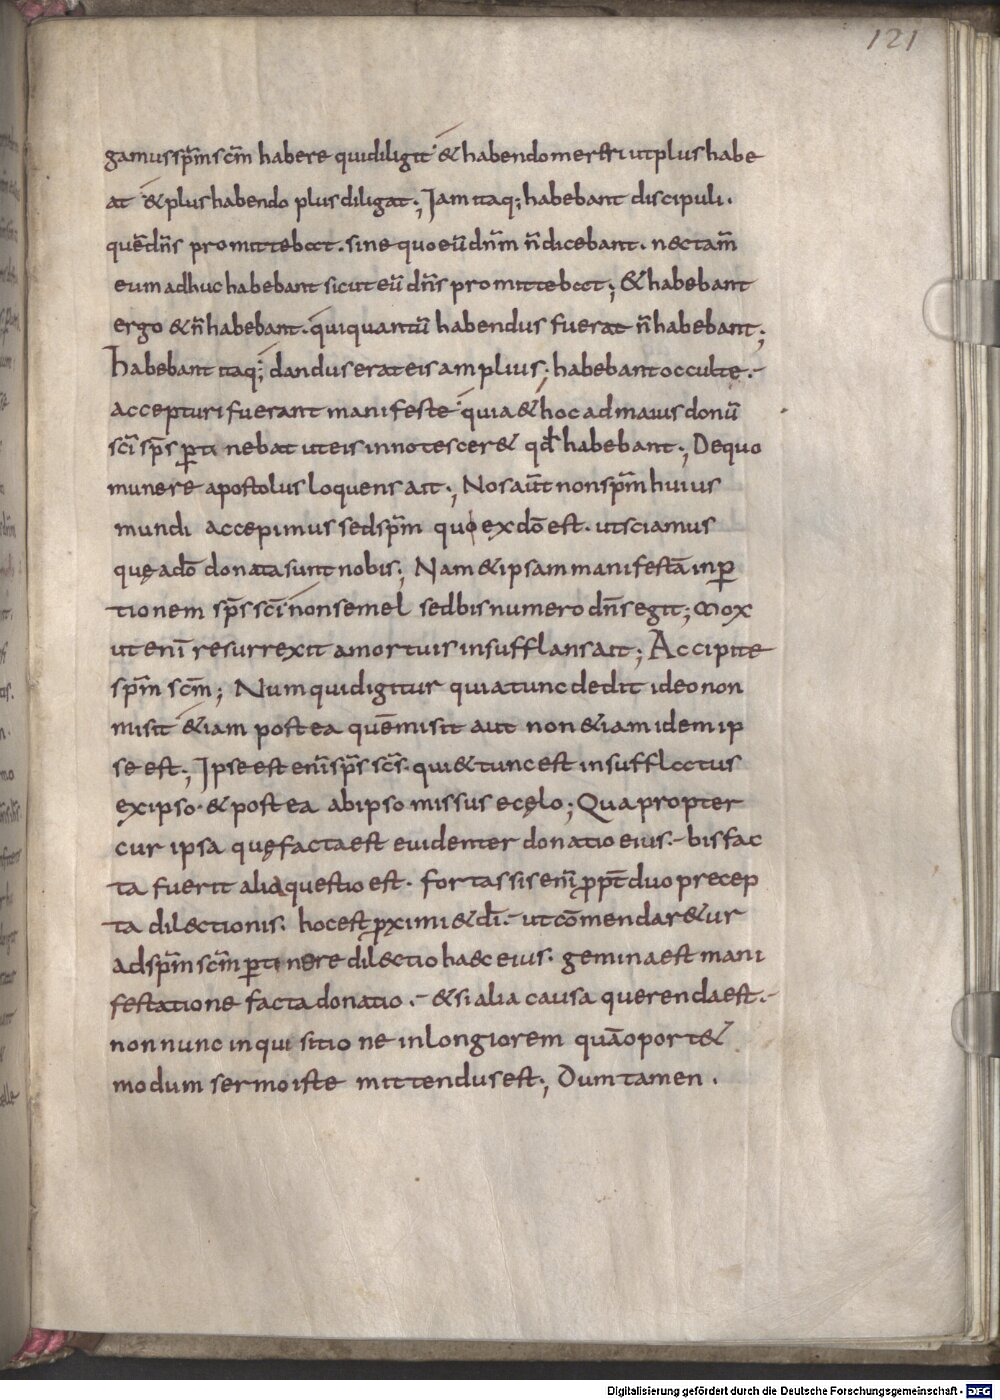 121
gamus sp̄m sc̄m habere qui diligit & habendo mereri ut plus habe
at & plus habendo plus diligat; Jam itaq; habebant discipuli.
quē dn̄s promittebat. sine quo eū dn̄m n̄ dicebant. nec tam̄
eum adhuc habebant sicut eū dn̄s promittebat; & habebant
ergo & n̄ habebant. qui quantū habendus fuerat n̄ habebant;
habebant itaq; dandus erat eis amplius; habebant occulte.
accepturi fuerant manifeste quia & hoc ad maius donū
sc̄i sp̄s ꝑtinebat ut eis innotescer& qđ habebant; De quo
munere apostolus loquens ait; Nos aūt non sp̄m huius
mundi accepimus sed sp̄m qui ex dō est. ut sciamus
quę a dō donata sunt nobis; Nam & ipsam manifestā inꝑ
tionem sp̄s sc̄i non semel sed bis numero dn̄s egit; Mox
ut enī resurrexit a mortuis insufflans ait; Accipite
sp̄m sc̄m; Num quid igitur quia tunc dedit ideo non
misit &iam postea quē misit aut non &iam idem ip
se est; Jpse est enī sp̄s sc̄s. qui & tunc est insufflatus
ex ipso. & postea ab ipso missus e cęlo; Quapropter
cur ipsa quę facta est euidenter donatio eius. bis fac
ta fuerit alia questio est. fortassis enī ꝓpt̄ duo precep
ta dilectionis. hoc est ꝓximi & dī. ut cōmendar&ur
ad sp̄m sc̄m ꝑtinere dilectio haec eius. gemina est mani
festatione facta donatio. & si alia causa querenda est.
non nunc inquisitione in longiorem quā oport&
modum sermo iste mittendus est; Dum tamen.
Digitalisierung gefördert durch die Deutsche Forschungsgemeinschaft - DFG